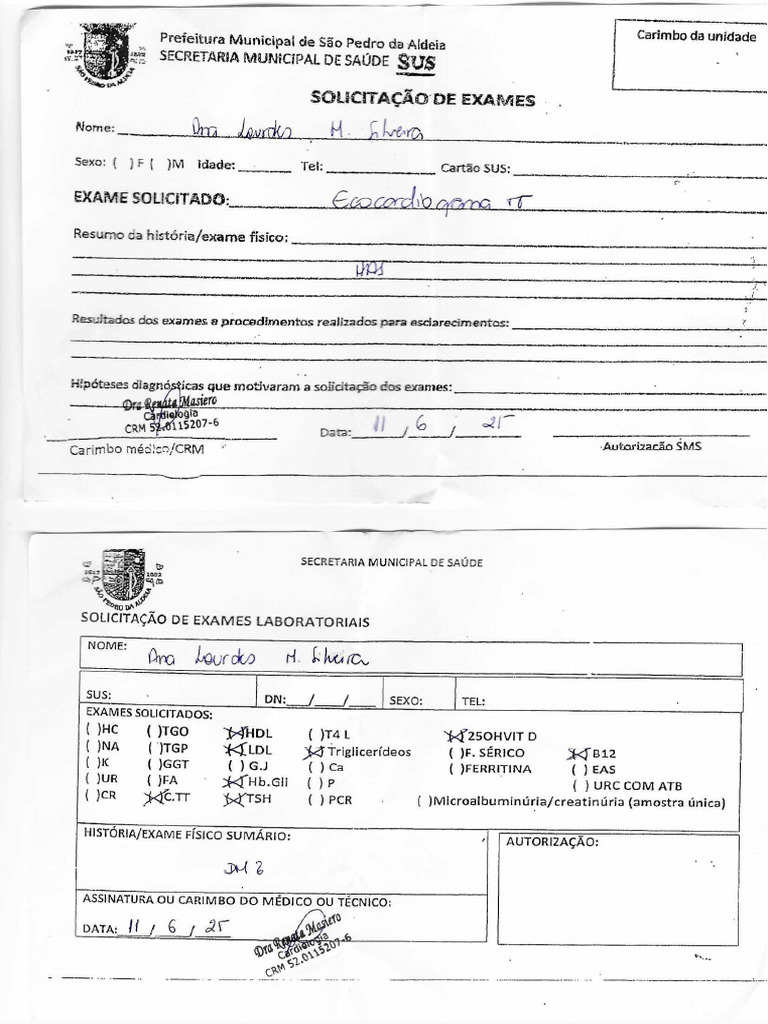 Prefeitura Municipal de São Pedro da Aldeia
SECRETARIA MUNICIPAL DE SAÚDE SUS
Carimbo da unidade
1617 1892
SÃO PEDRO DA ALDEIA
SOLICITAÇÃO DE EXAMES
Nome: Ana Lourdes M. Silveira
Sexo: ( )F ( )M Idade: Tel: Cartão SUS:
EXAME SOLICITADO: Ecocardiograma TT
Resumo da história/exame físico:
HAS
Resultados dos exames e procedimentos realizados para esclarecimentos:
Hipóteses diagnósticas que motivaram a solicitação dos exames:
Dra Renata Masiero
Cardiologia
CRM 52.0115207-6
Data: 11 / 6 / 25
Carimbo médico/CRM
Autorização SMS
SECRETARIA MUNICIPAL DE SAÚDE
1617 1892
SÃO PEDRO DA ALDEIA
SOLICITAÇÃO DE EXAMES LABORATORIAIS
NOME: Ana Lourdes M. Silveira
SUS: DN: / / SEXO: TEL:
EXAMES SOLICITADOS:
( )HC ( )TGO (X)HDL ( )T4 L (X)25OHVIT D
( )NA ( )TGP (X)LDL (X)Triglicerídeos ( )F. SÉRICO (X)B12
( )K ( )GGT ( )G.J ( ) Ca ( )FERRITINA ( ) EAS
( )UR ( )FA (X)Hb.Gli ( ) P ( ) URC COM ATB
( )CR (X)C.TT (X)TSH ( ) PCR ( )Microalbuminúria/creatinúria (amostra única)
HISTÓRIA/EXAME FÍSICO SUMÁRIO:
DM 2
AUTORIZAÇÃO:
ASSINATURA OU CARIMBO DO MÉDICO OU TÉCNICO:
DATA: 11 / 6 / 25
Dra Renata Masiero
Cardiologia
CRM 52.0115207-6